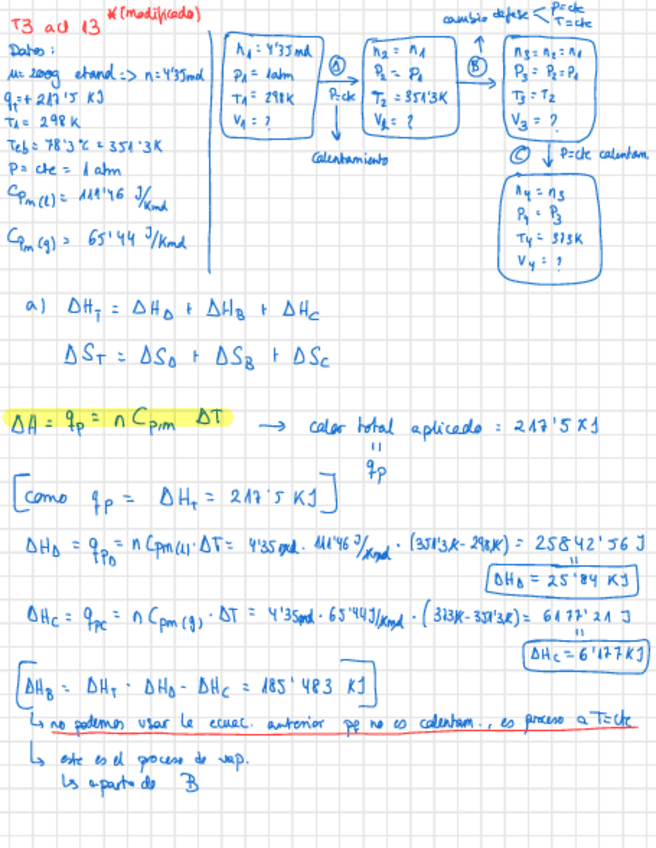 T3 act 13 *(modificado)
Datos:
m = 200g etanol => n = 4'35mol
q = + 217'5 KJ
T1 = 298K
Teb = 78'3ºC = 351'3K
P = cte = 1 atm
Cpm(l) = 111'46 J/Kmol
Cpm(g) = 65'44 J/Kmol
n1 = 4'35 mol
P1 = 1atm
T1 = 298K
V1 = ?
A
P=cte
Calentamiento
n2 = n1
P2 = P1
T2 = 351'3K
V2 = ?
cambio de fase < P=cte
T=cte
B
n3 = n2 = n1
P3 = P2 = P1
T3 = T2
V3 = ?
C P=cte calentam.
n4 = n3
P4 = P3
T4 = 373K
V4 = ?
a) ΔHT = ΔHA + ΔHB + ΔHC
ΔST = ΔSA + ΔSB + ΔSC
ΔH = qp = n Cp,m ΔT → calor total aplicado = 217'5 KJ
=
qp
[como qp = ΔHT = 217'5 KJ]
ΔHA = qpA = n Cpm(l) · ΔT = 4'35 mol · 111'46 J/Kmol · (351'3K - 298K) = 25842'56 J
=
ΔHA = 25'84 KJ
ΔHC = qpC = n Cpm(g) · ΔT = 4'35mol · 65'44J/Kmol · (373K - 351'3K) = 6177'21 J
=
ΔHC = 6'177KJ
[ΔHB = ΔHT - ΔHA - ΔHC = 185'483 KJ]
↳ no podemos usar la ecuac. anterior pq no es calentam., es proceso a T=cte
↳ este es el proceso de vap.
↳ aparto de B